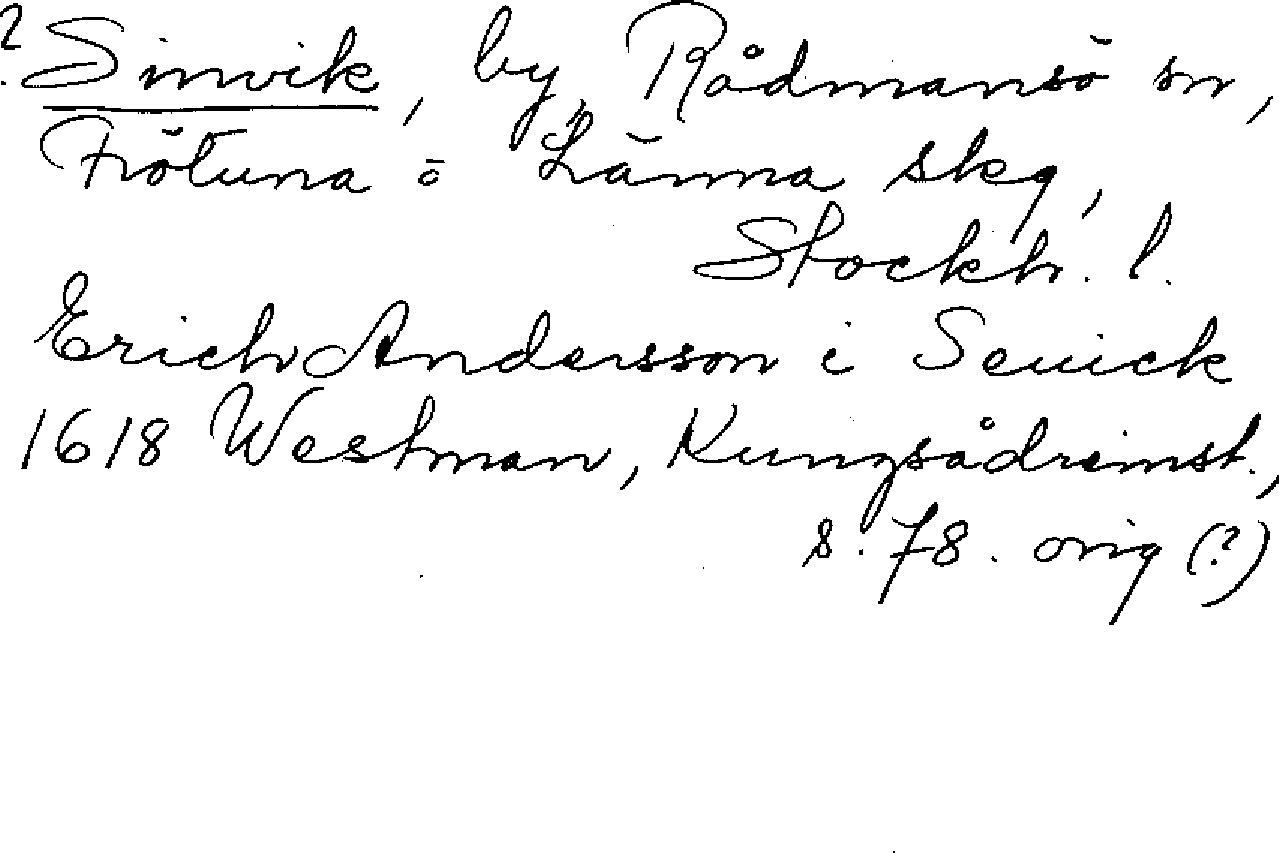 ? Simvik, by, Rådmansö sn,
Frötuna o Länna skg,
Stockh. l.
Erich Andersson i Seuick
1618 Westman, Kungsådreinst.,
s. 78. orig (?)